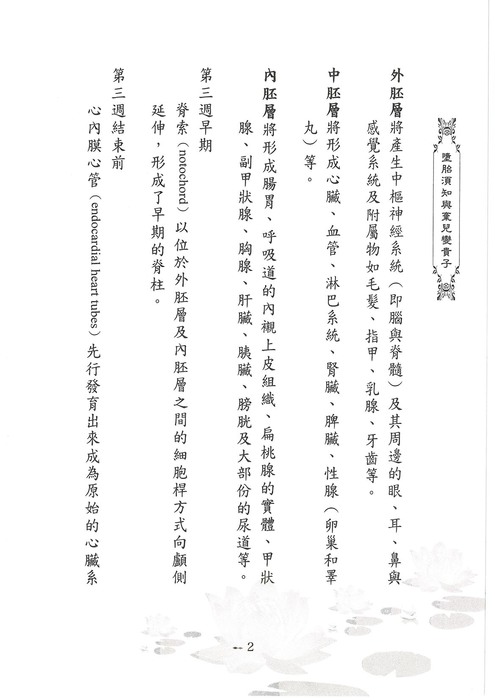 墮胎須知與童兒變貴子
外胚層將產生中樞神經系統（即腦與脊髓）及其周邊的眼、耳、鼻與
感覺系統及附屬物如毛髮、指甲、乳腺、牙齒等。
中胚層將形成心臟、血管、淋巴系統、腎臟、脾臟、性腺（卵巢和睪
丸）等。
內胚層將形成腸胃、呼吸道的內襯上皮組織、扁桃腺的實體、甲狀
腺、副甲狀腺、胸腺、肝臟、胰臟、膀胱及大部份的尿道等。
第三週早期
脊索（notochord）以位於外胚層及內胚層之間的細胞桿方式向顱側
延伸，形成了早期的脊柱。
第三週結束前
心內膜心管（endocardial heart tubes）先行發育出來成為原始的心臟系
-- 2